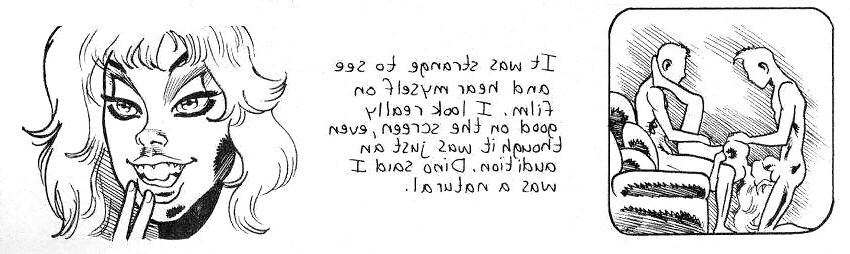 It was strange to see
and hear myself on
film. I look really
good on the screen, even
though it was just an
audition. Dino said I
was a natural.